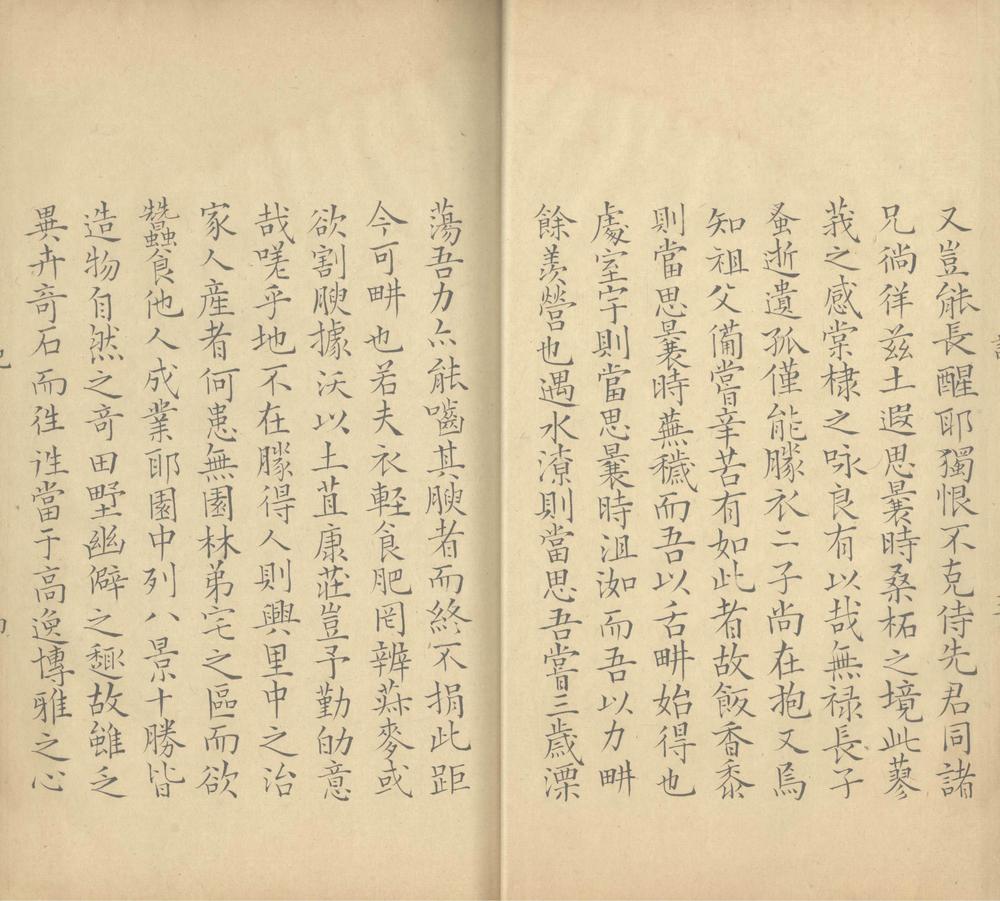 又豈能長醒耶獨恨不克侍先君同諸
兄徜徉兹土遐思曩時桑柘之境此蓼
莪之感棠棣之咏良有以哉無禄長子
蚤逝遺孤僅能勝衣二子尚在抱又烏
知祖父備嘗辛苦有如此者故飯香黍
則當思曩時蕪穢而吾以舌畊始得也
處室宇則當思曩時沮洳而吾以力畊
餘羨營也遇水潦則當思吾嘗三歲湮
蕩吾力亦能嚙其腴者而終不捐此距
今可畊也若夫衣軽食肥罔辨菽麥或
欲割腴據沃以土苴康莊豈予勤劬意
哉嗟乎地不在勝得人則興里中之治
家人産者何患無園林弟宅之區而欲
蠶食他人成業耶園中列八景十勝皆
造物自然之竒田野幽僻之趣故雖乏
異卉竒石而徃徃當于高逸博雅之心